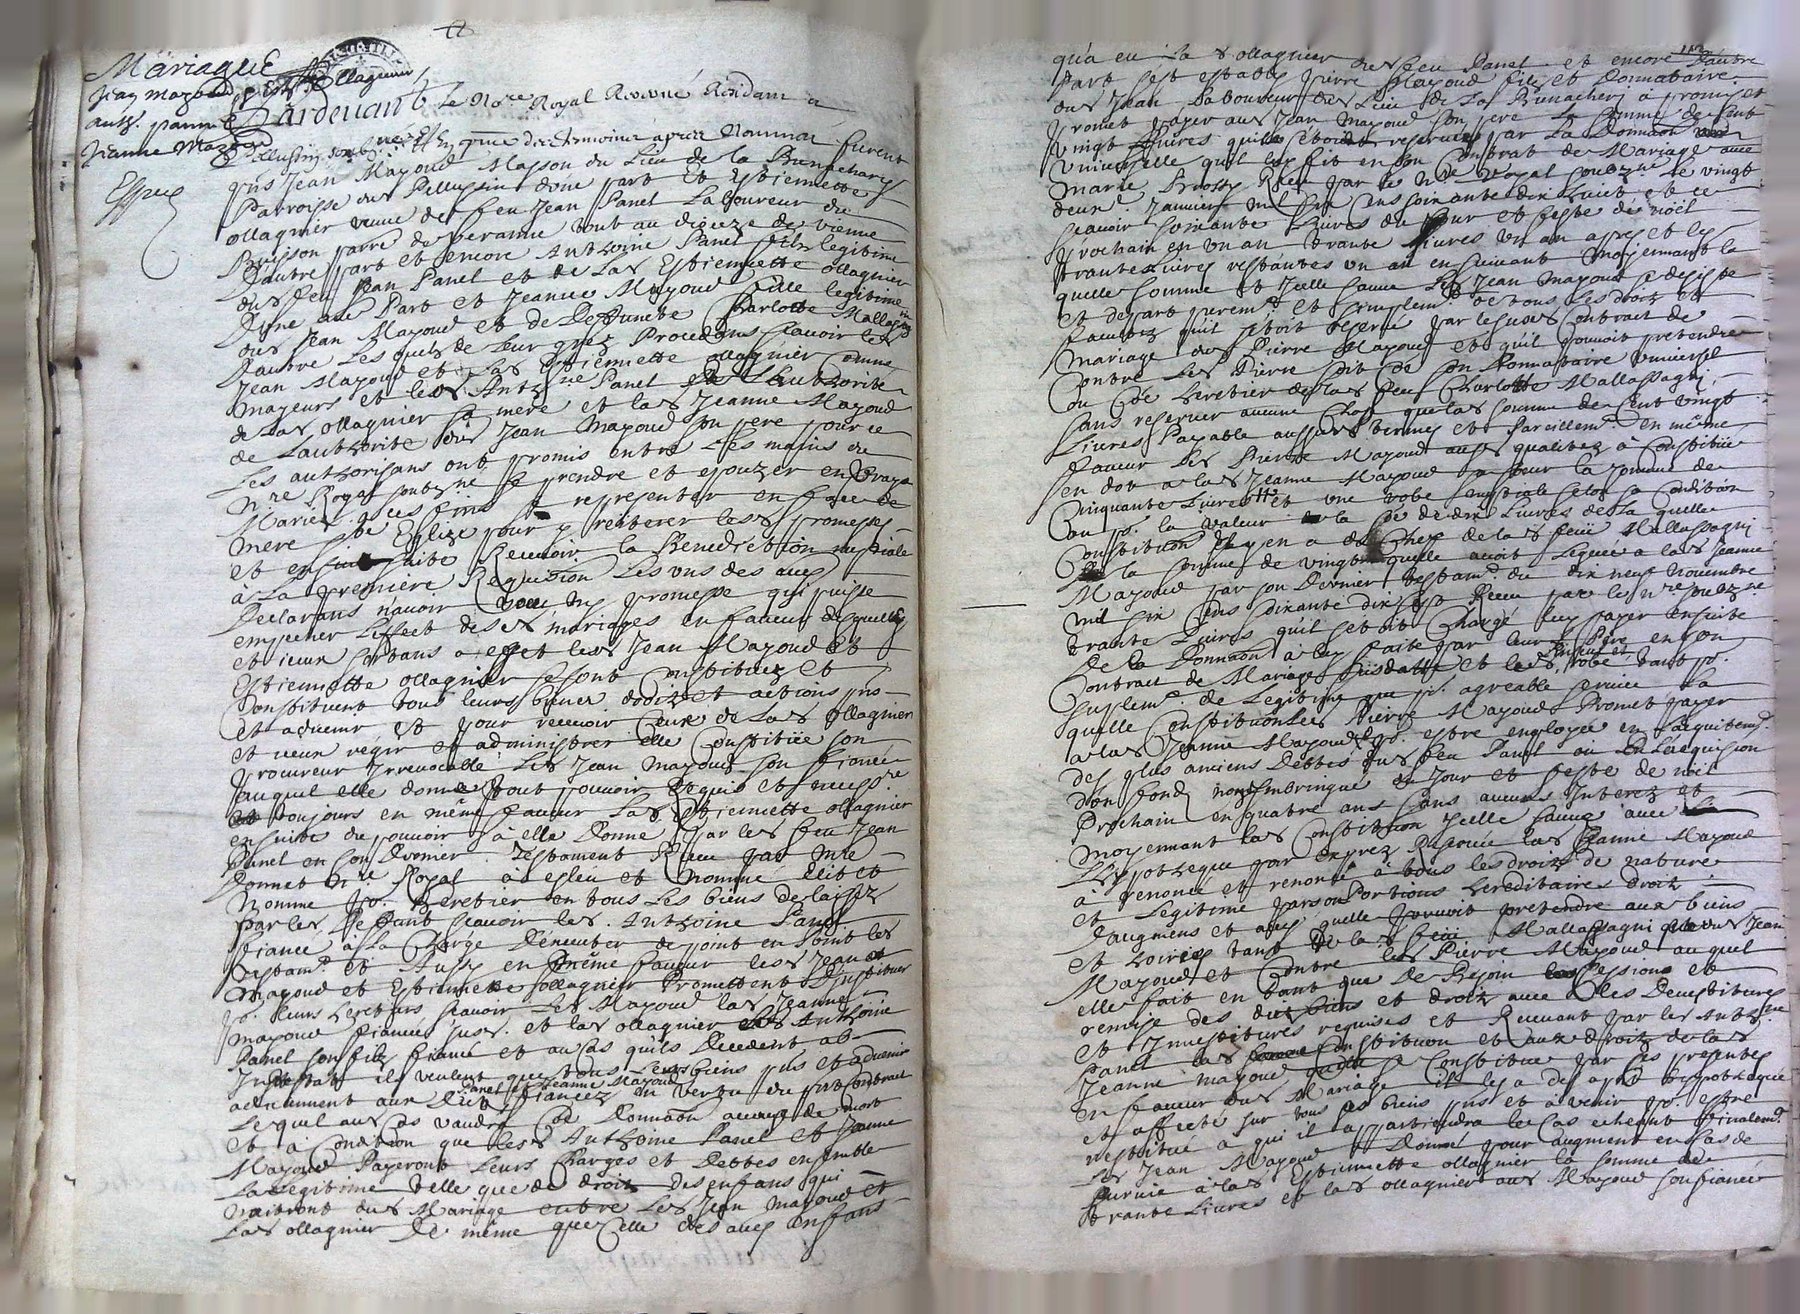 Mariague
Jean mazoud, Estte ollagnier
anth. panel
Jeanne Mazoud
Expeé
Pardevant le Nore Royal Reservé Residant a
Pellussin soubzné Et en pnce des temoins apres Nommez furent
pnts Jean Mazoud Masson du Lieu de la Brunacherÿ
Parroisse du Pellussin d'une part Et Estiennette
ollagnier veuve de feu Jean Panel Laboureur du
Buisson parre de veranne tout au dioceze de vienne
Dautre part et encore Anthoine Panel filz legitime
dud feu Jean Panel et de lad Estiennette ollagnier
D'une au Part et Jeanne Mazoud fille legitime
dud Jean Mazoud et de Deffuncte Charlotte Mallassagny
Dautre Les quelz de leur grez Procedans scavoir led
Jean Mazoud et lad Estiennette ollagnier comme
majeurs et led Anthne Panel de l'authorité
de Lad ollagnier sa mere et lad Jeanne Mazoud
de l'authorité dud Jean Mazoud son pere pour ce
Les authorisans ont promis entre Les mains du
Nre Royal soubzne se prendre et epouzer en vrays
Mariez a ces fins se representer en face de
mere ste Eglize pour y reiterer lesd promesses
et ensuitte Recevoir la Benediction nuptiale
a La premiere Requision Les uns des aues
Declarans n'avoir voeu ny promesse qui puisse
empecher L'effect desd mariages en faveur desquelz
et iceux sortans a effet led Jean Mazoud et
Estiennette ollagnier se sont constituez et
Constituent tous leurs biens droitz et actions pns
et advenir et pour recevoir ceux de Lad ollagnier
et iceux regir et administrer elle Constitue son
procureur Irrevocable Led Jean Mazoud son fiancé
auquel elle donne tout pouvoir Requis et necessre
toujours en même faveur Lad Estiennette ollagnier
ensuitte du pouvoir a elle Donné par led feu Jean
Panel en son Dernier Testament Reçu par Mre
Donnet Nre Royal a esleu et Nommé elit et
Nomme pr. Heretier en tous Les biens delaissez
par led Deffunt scavoir led. Anthoine Panel
fiancé à La Charge D'executer de point en point led
testamt et Aussy en même faveur lesd Jean
Mazoud et Estiennette ollagnier Promettent D'Instituer
pr. leurs heretiers scavoir Led Mazoud lad Jeanne
mazoud fiancée sus. et lad ollagnier led Anthoine
Panel son filz fiancé et au cas qu'ils Decedent ab
Intestat ils veulent que tous leurs biens pns et advenir
adviennent aux Ditz Panel et Jeanne Mazoud fiancez en vertu du pnt contract
Lequel aud cas vaudra de Donnaôn a cause de mort
et a condition que lesd Anthoine Panel et Jeanne
Mazoud Payeront Leurs Charges et Debtes ensemble
La Legitime telle que de droit des enfans qui
naitront dud Mariage entre Led Jean Mazoud et
Lad ollagnier De même que celle des aues enfans
qu'a eu La d ollagnier dud feu Panel et encore D'autre
Part s'est estably pierre Mazoud filz et Donnataire
dud Jean Laboureur du Lieu de La Brunacherÿ a promis et
Promet payer aud Jean Mazoud son pere la somme de Cent
Vingt Livres quil s'étoit reservé par La Donnaôn
universelle qu'il luy fit en son Contract de Mariage avec
marie Brossy Receu par le Nre Royal soubzne Le vingt
deuxe. Janvier mil six Cens soixante dix huict et ce
scavoir soixante Livres du jour et feste de noël
prochain en un an trante Livres un an apres et les
trante Livres restantes un an ensuivant moyennant la
quelle somme et Icelle sauve Led Jean Mazoud se desiste
et depart puremt et simplemt de tous Les droits et
facultez qu'il s'étoit reservé par lesusd Contract de
mariage dud Pierre Mazoud et qu'il pouvoit pretendre
contre led Pierre soit de son Donnataire universel
ou de heretier de lad feu Charlotte Mallassagny
sans reserver aucune Chose que lad somme de Cent vingt
Livres Payable ausd termes et Pareillemt en même
faveur Led Pierre Mazoud ausd qualitez a constitué
en dot a lad Jeanne Mazoud sa soeur la somme de
Cinquante Livres et une robe nuptiale selon sa Condition
ou pr. la valeur de dix Livres de la quelle
Constituôn Il y en a du Chef de lad feue Mallassagny
la somme de vingt quelle avoit Leguée a lad Jeanne
Mazoud par son Dernier testamt du dix neuf Novembre
mil six Cens soixante dix sept Receu par led Nre soubzne
trante Livres qu'il s'etoit Chargé luy payer ensuite
de la Donnaôn a luy faite par leur Pere en son
Contract de Mariage susdatté et lad robe tant pr.
suplemt de Legitime que pr. agreable service La
quelle Constituôn Led Pierre Mazoud Promet payer
a lad Jeanne Mazoud pr. estre employée en l'acquitemt
des plus anciens Debtes dud feu Panel ou en l'acquision
d'un fond du Jour et feste de noël
Prochain en quatre ans sans aucuns Interez et
moyennant lad Constituôn Icelle sauve avec
L'hypotheque par exprez Reservée Lad Jeanne Mazoud
a renoncé et renonce a tous les droitz de nature
et Legitime parson Portions hereditaires droit
d'augmens et aues quelle pouvoit pretendre aux biens
et hoiries tant de lad feue Mallassagni que dud Jean
Mazoud et Contre led Pierre Mazoud auquel
elle fait en tant que De Besoin Cession et
remise des dits biens et droitz avec les Devestitures
et Investitures requises et Recevant par led Anthne
Panel Lad Constituon et aux droitz de lad
Jeanne mazoud se Constitue par ces presentes
en faveur dud Mariage il les a des apnt hippotheque
et affecté sur tous ses biens pns et a venir pr. estre
restitué a qui il appartiendra le cas echeant finalemt
Led Jean Mazoud Donné pour augment en cas de
survie a lad Estiennette ollagnier la somme de
trante Livres et lad ollagnier aud Mazoud son fiancé